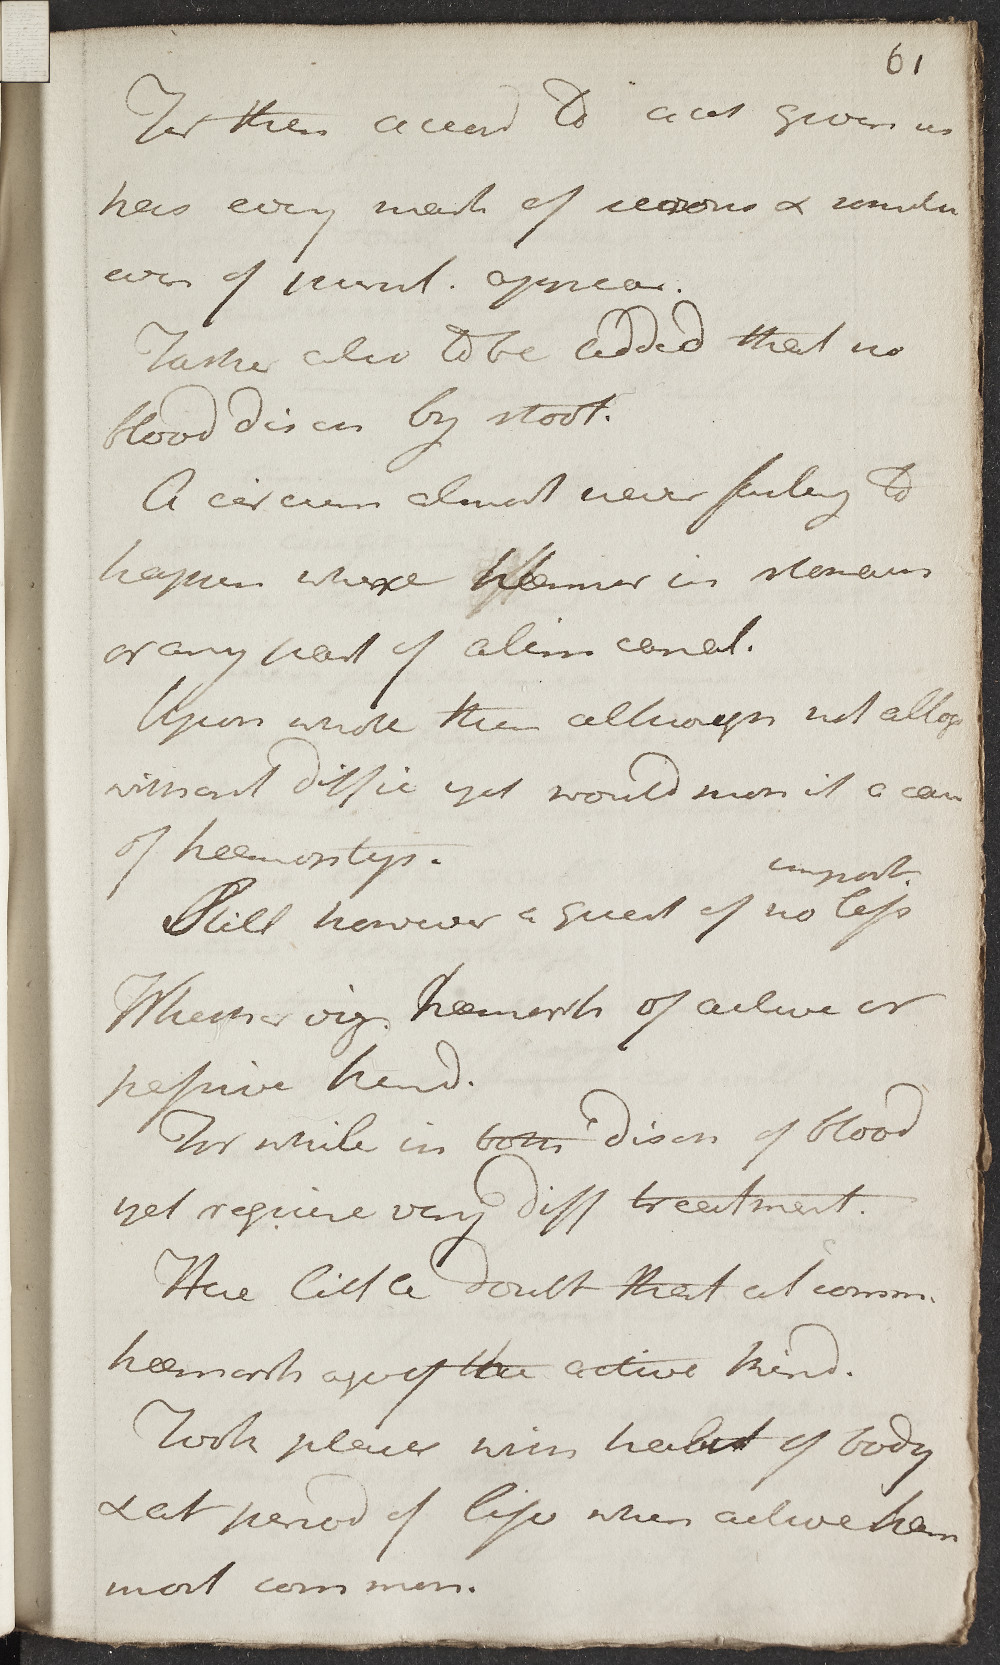 61
For then accord to acct given us
has every mark of serous &
even of purul. appear.
Farther also to be added that no
blood disch by stool.
A circum almost never failing to
happen where haemor in stomach
or any part of alim canal.
Upon whole then although not altog
without diffic yet would mon it a case
of haemoptys.
import.
Still however a quest of no less
Whether vig. haemorrh of active or
passive kind.
For while in both disch of blood
yet require very diff treatment.
Have little doubt that at comm.
haemorrhage of the active kind.
Took place when habit of body
& at period of life when active haem
most common.